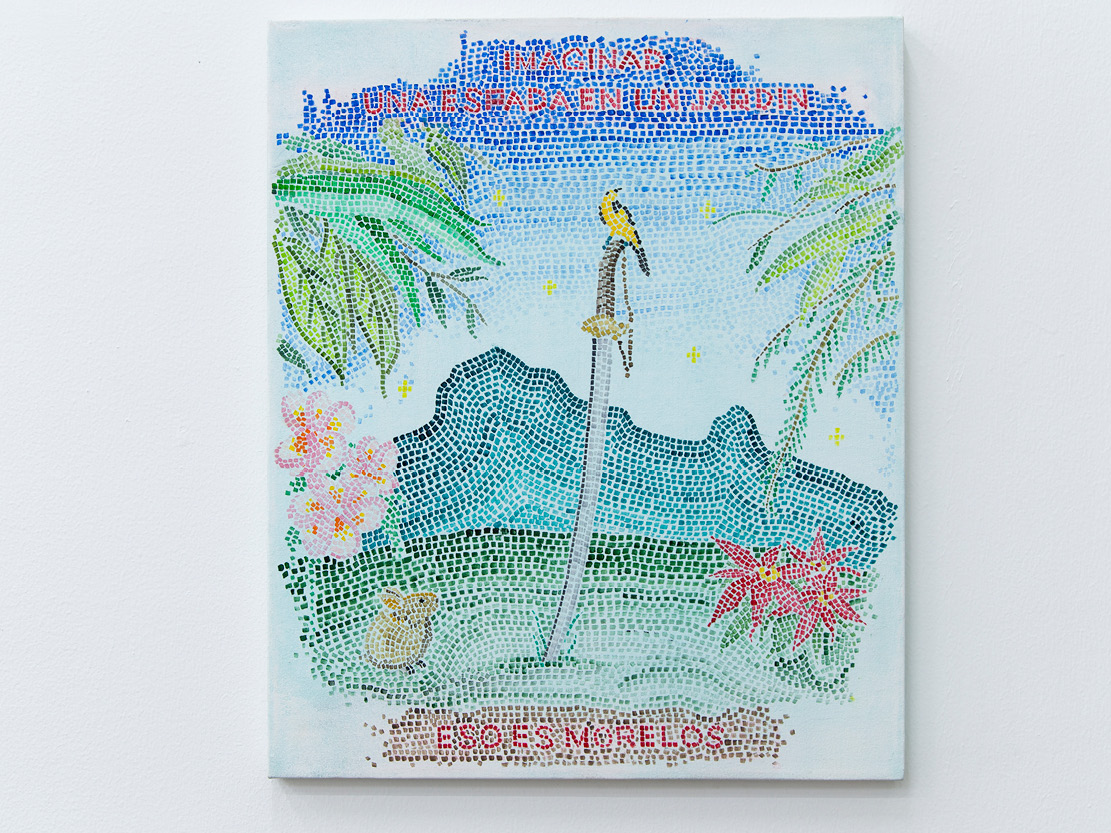 IMAGINAD
UNA ESPADA EN UN JARDIN
ESO ES MORELOS